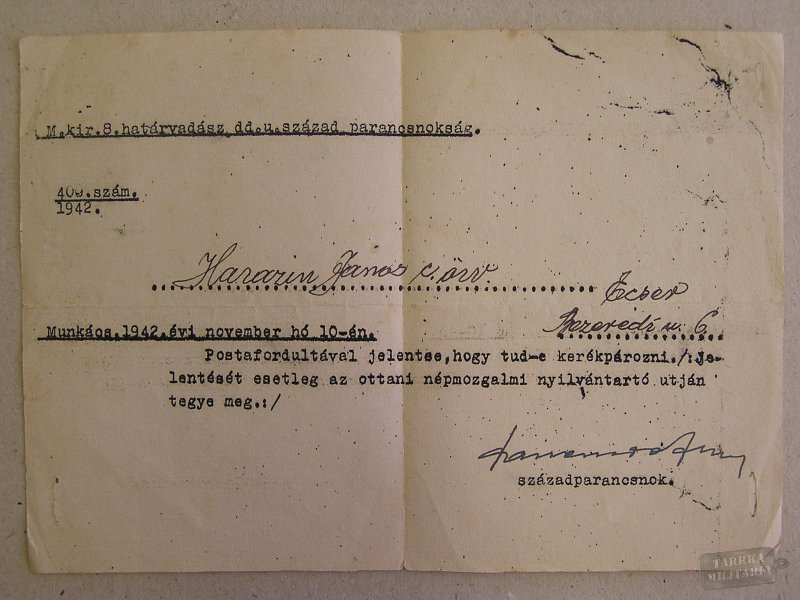 M.kir.8.határvadász dd.u.század parancsnokság.
400.szám.
1942.
Harazin János c. örv.
Ecser
Bezerédi u. 6.
Munkács.1942.évi november hó 10-én.
Postafordultával jelentse,hogy tud-e kerékpározni./:je-
lentését esetleg az ottani népmozgalmi nyilvántartó utján
tegye meg.:/
századparancsnok.
TARRKA
MILITARIA